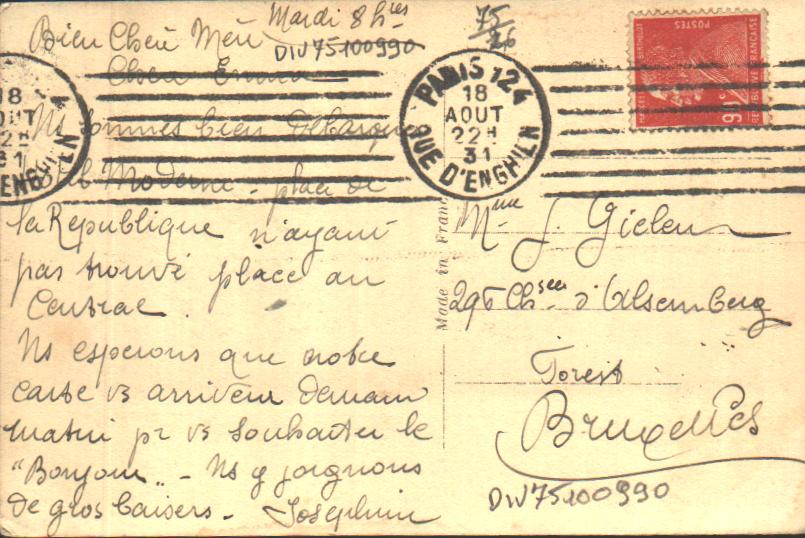 Mardi 8 hres
75/26
DIV75100990
Bien Chère Mère
Chère Emma
Ns sommes bien débarqué
Moderne - place de
la République n'ayant
pas trouvé place au
Central.
Ns esperons que notre
carte vs arrivera demain
matin pr vs souhaiter le
"Bonjour" - Ns y joignons
de gros baisers - Josephine
18
AOUT
22H
31
D'ENGHIEN
PARIS 124
18
AOUT
22H
31
RUE D'ENGHIEN
POSTES
REPUBLIQUE FRANÇAISE
90c
Made in France
Mme J. Gielen
Chsée d'Alsemberg
Forest
Bruxelles
DIV75100990